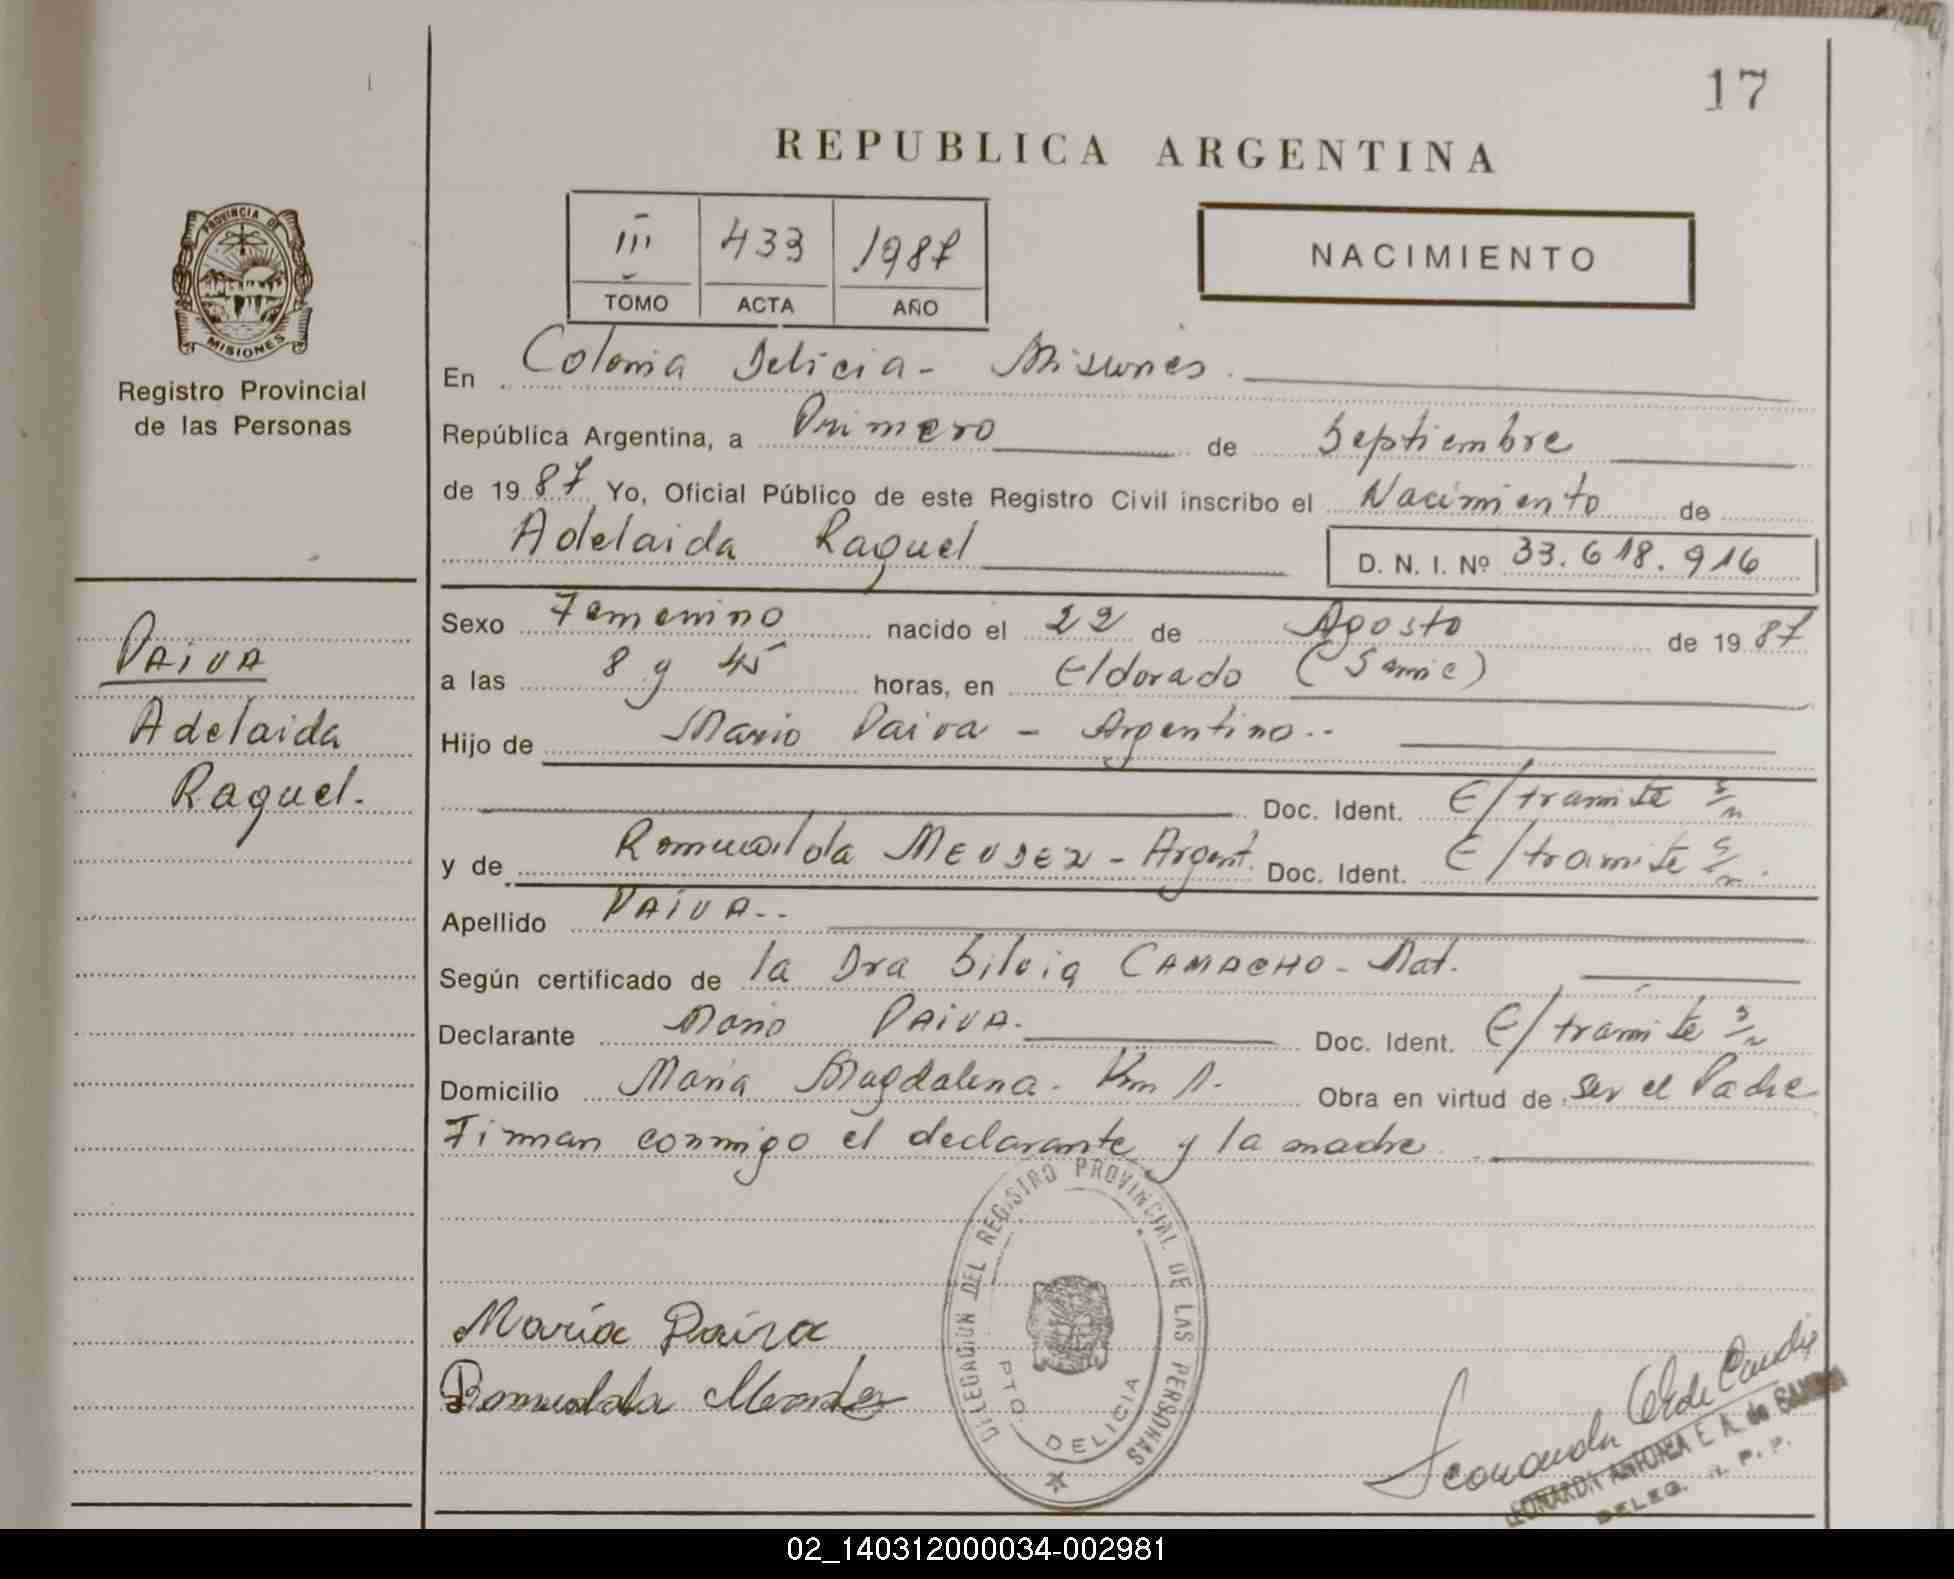 17
REPUBLICA ARGENTINA
PROVINCIA DE
MISIONES
Registro Provincial
de las Personas
III 433 1987
TOMO ACTA AÑO
NACIMIENTO
En Colonia Delicia - Misiones.
República Argentina, a Primero de Septiembre
de 1987 Yo, Oficial Público de este Registro Civil inscribo el Nacimiento de
Adelaida Raquel D. N. I. Nº 33.618.916
Sexo Femenino nacido el 22 de Agosto de 1987
a las 8 y 45 horas, en Eldorado (Samic)
Hijo de Mario Paiva - Argentino..
Doc. Ident. E/tramite s/n
y de Romualda MENDEZ - Argent. Doc. Ident. E/tramite s/n.
Apellido PAIVA..
Según certificado de la Dra Silvia CAMACHO - Mat.
Declarante Mario PAIVA. Doc. Ident. E/tramite s/n
Domicilio Maria Magdalena - Km 1. Obra en virtud de ser el Padre
Firman conmigo el declarante y la madre.
PAIVA
Adelaida
Raquel.
DELEGACION DEL REGISTRO PROVINCIAL DE LAS PERSONAS
PTO. DELICIA
Paiva
Romualda Mendez
LEONARDA ANTONIA E. A. de
DELEG. R. P. P.
02_140312000034-002981